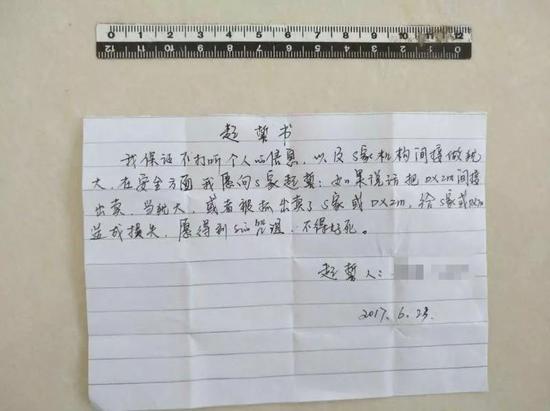 0 1 2 3 4 5 6 7 8 9 10 11 12
12 11 10 9 8 7 6 5 4 3 0
起誓书
我保证不打听个人信息,以及S家机构间接做犹
大,在安全方面我愿向S家起誓:如果说话把DXZM间接
出卖,当犹大,或者被抓出卖了S家或DXZM,给S家或
造成损失,愿得到咒诅,不得好死。
起誓人:
2017.6.23.